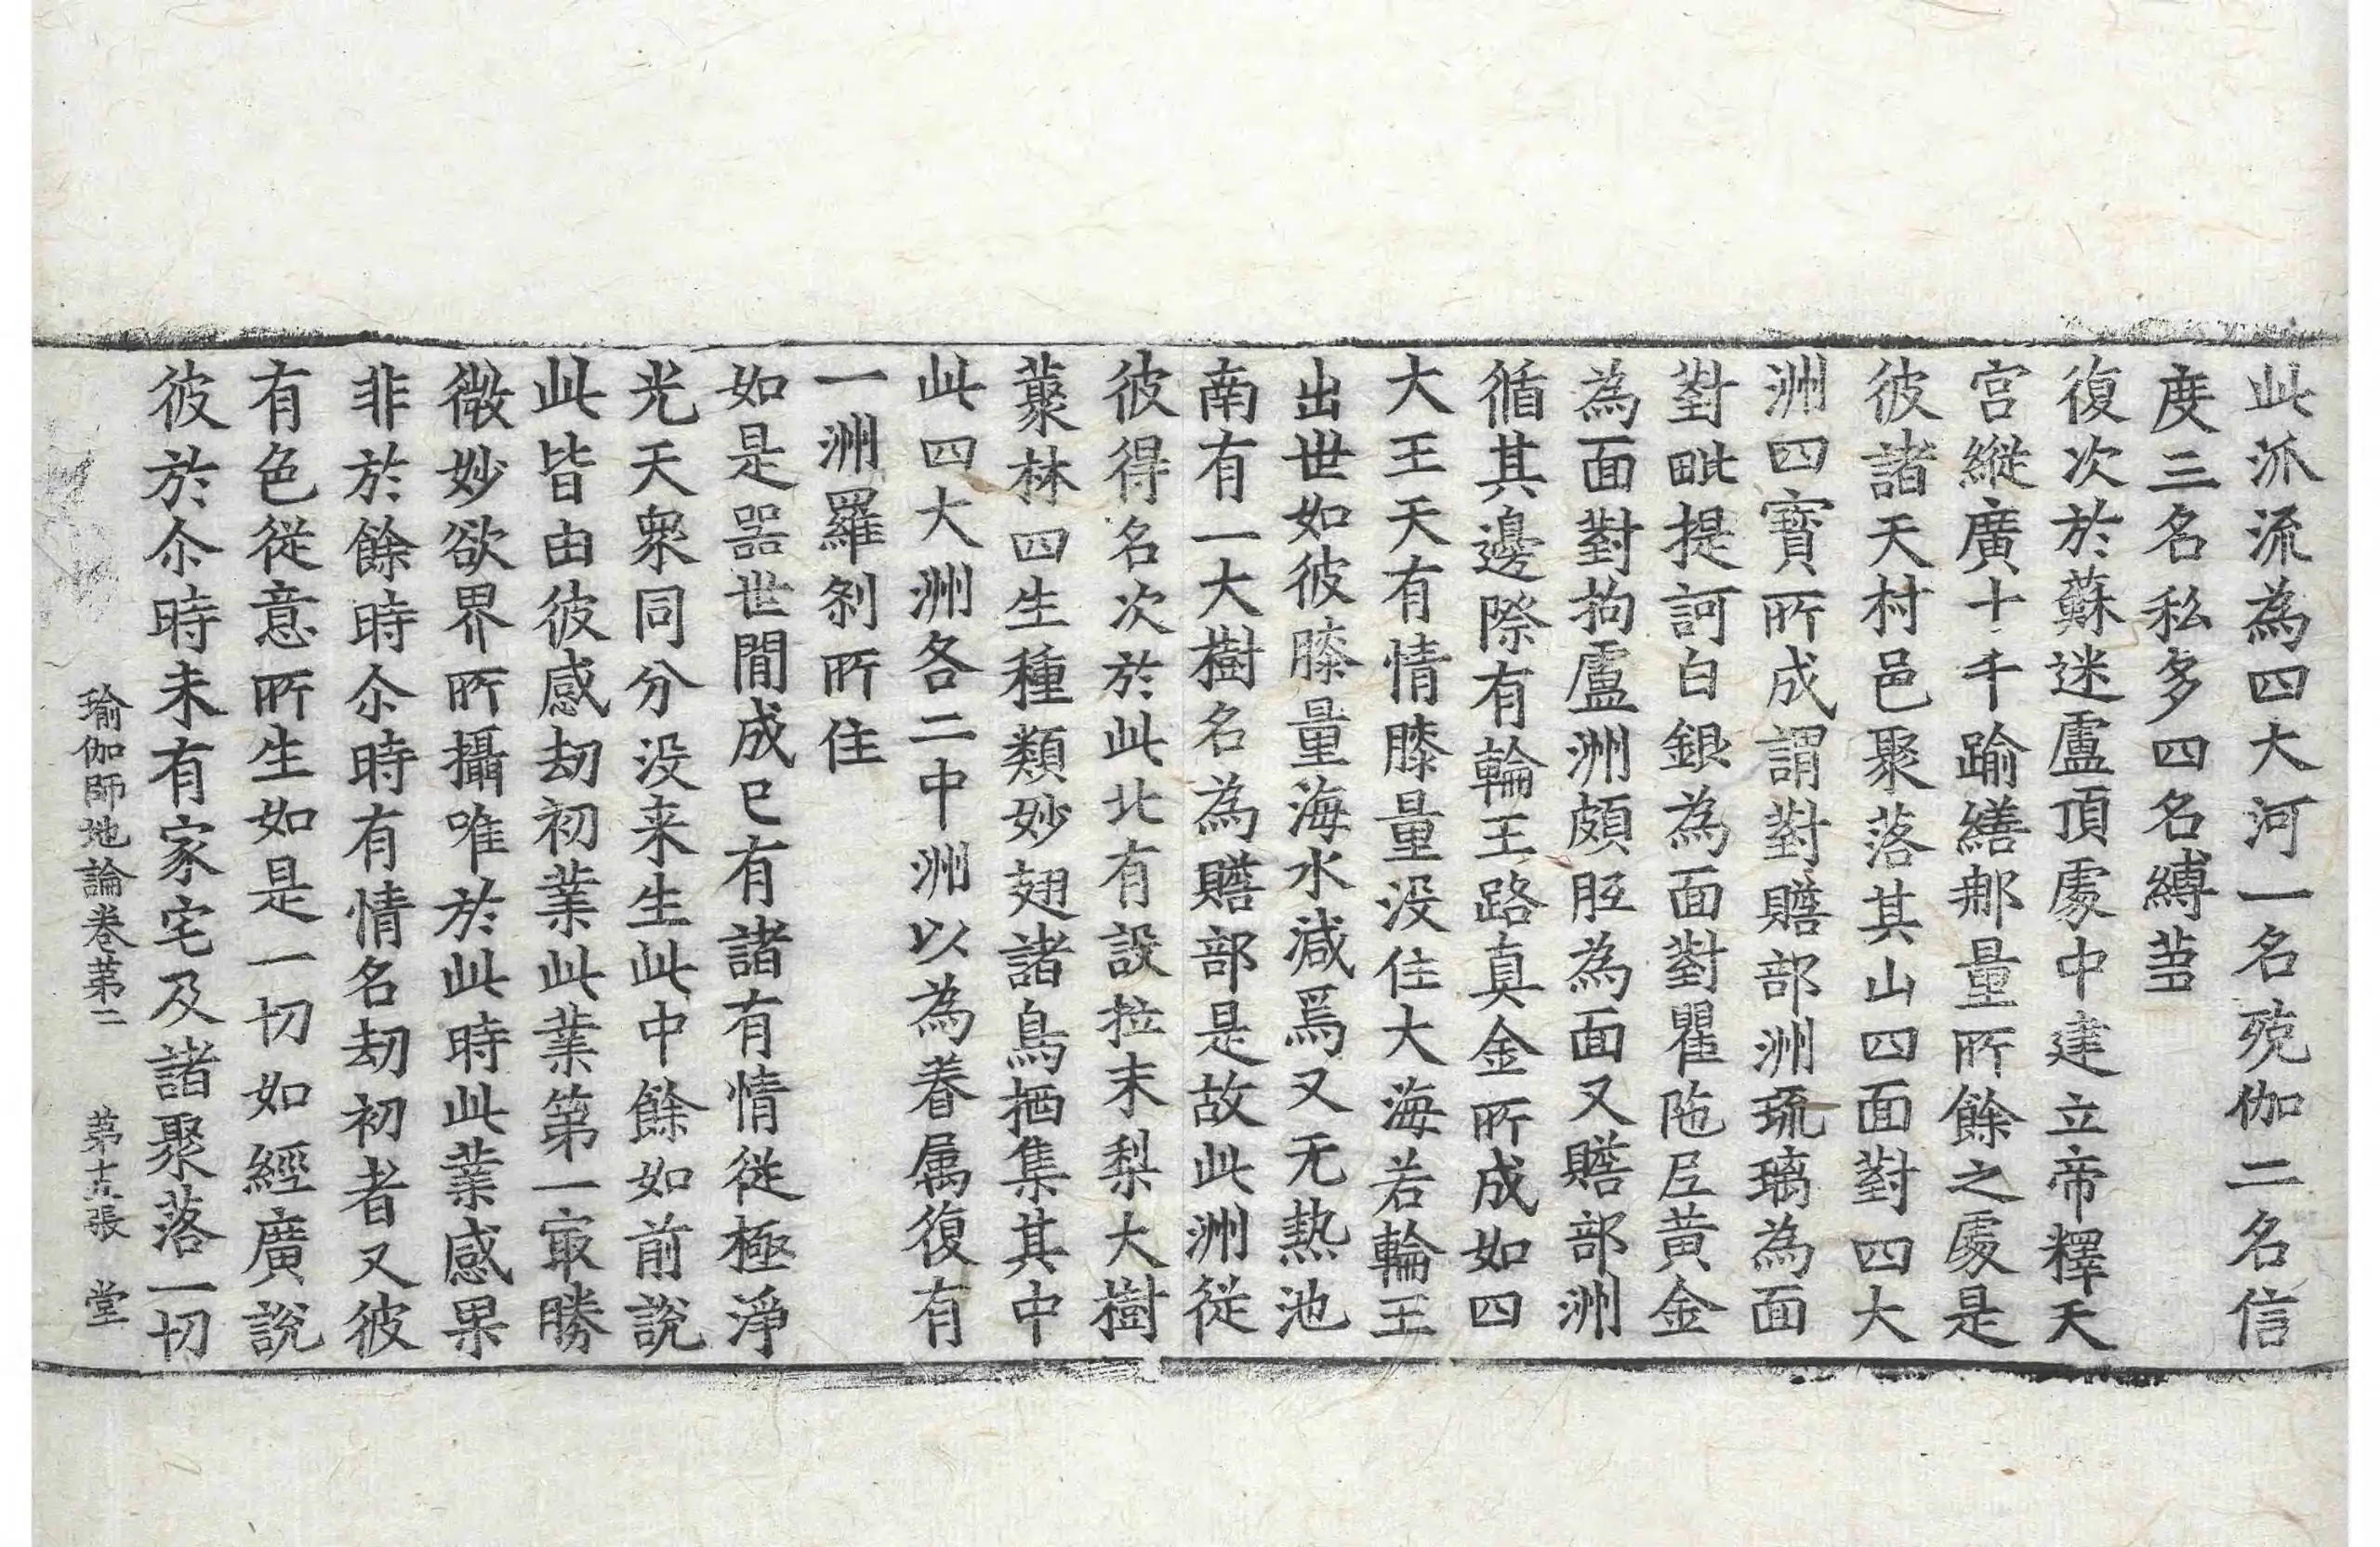 此泒流為四大河一名殑伽二名信
度三名私多四名縛芻
復次於蘇迷盧頂處中建立帝釋天
宮縱廣十千踰繕那量所餘之處是
彼諸天村邑聚落其山四面對四大
洲四寶所成謂對贍部洲琉璃為面
對毗提訶白銀為面對瞿陁尼黃金
為面對拘盧洲頗胝為面又贍部洲
循其邊際有輪王路真金所成如四
大王天有情膝量没住大海若輪王
出世如彼膝量海水減焉又无熱池
南有一大樹名為贍部是故此洲從
彼得名次於此北有設拉末梨大樹
藂林四生種類妙翅諸鳥栖集其中
此四大洲各二中洲以為眷属復有
一洲羅剎所住
如是器世間成已有諸有情從極淨
光天衆同分没来生此中餘如前說
此皆由彼感劫初業此業第一㝡勝
微妙欲界所攝唯於此時此業感果
非於餘時尒時有情名劫初者又彼
有色從意所生如是一切如經廣說
彼於尒時未有家宅及諸聚落一切
瑜伽師地論卷苐二　苐十五張　堂